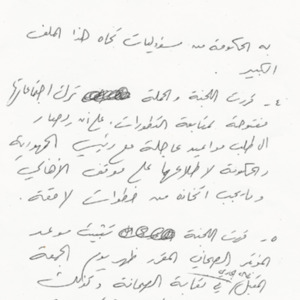 به الحكومة من مسؤوليات تجاه هذا الملف
الكبير.
٤- قررت اللجنة والحملة ترك اجتماعاتها
مفتوحة لمتابعة التطورات، على أن يصار
الى طلب مواعيد عاجلة مع رئيسي الجمهورية
والحكومة لاطلاعها على موقف الاهالي
وما يجب اتخاذه من خطوات لاحقة.
٥- قررت اللجنة تثبيت موعد
المؤتمر الصحافي المقرر ظهر يوم الجمعة
المقبل في نقابة الصحافة وكذلك